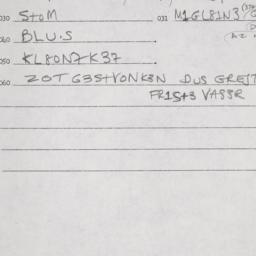 030 StoM 031 M1GL81N3
040 BLU.S
050 KL80N7K37
060 ZOT G3StVONK8N DUS GREIT
FR1St3 VASSR